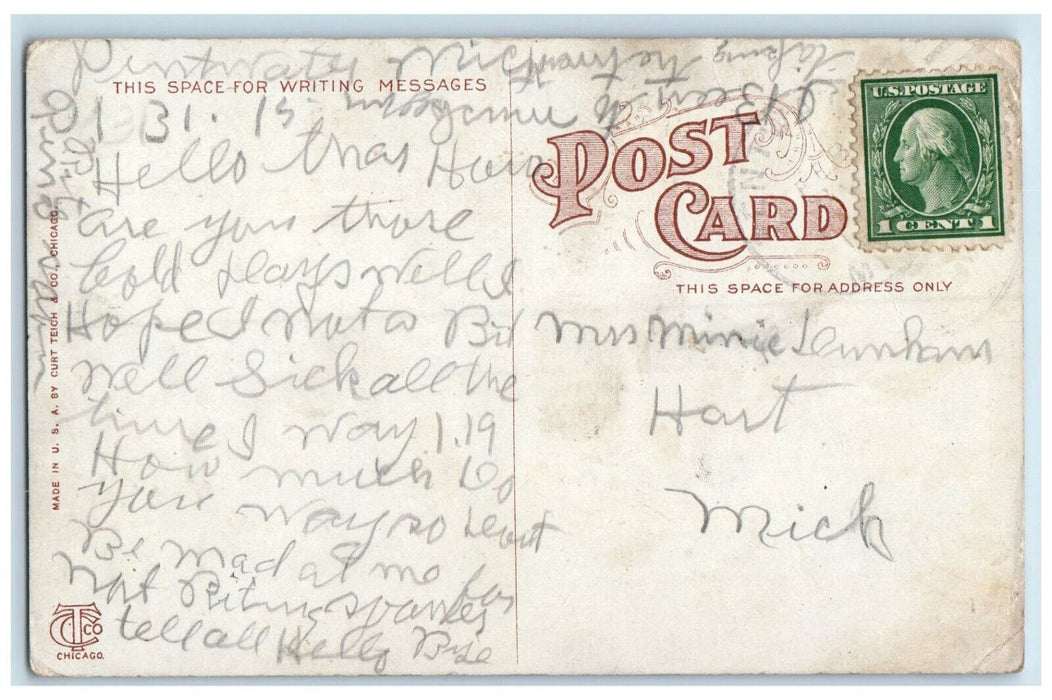 Pentwater Mich
THIS SPACE FOR WRITING MESSAGES
1 31. 15
Hello thas How
are you those
Cold days Well I
Hoped Not a Bit
Well Sick all the
time I Way 119
How much do
you Way so dont
Be mad at me for
Not Riting sooner
tell all Hello Bye
MADE IN U. S. A. BY CURT TEICH & CO., CHICAGO.
CT CO
CHICAGO.
POST
CARD
U.S. POSTAGE
1 CENT 1
THIS SPACE FOR ADDRESS ONLY
Mrs Minie Dunham
Hart
Mich